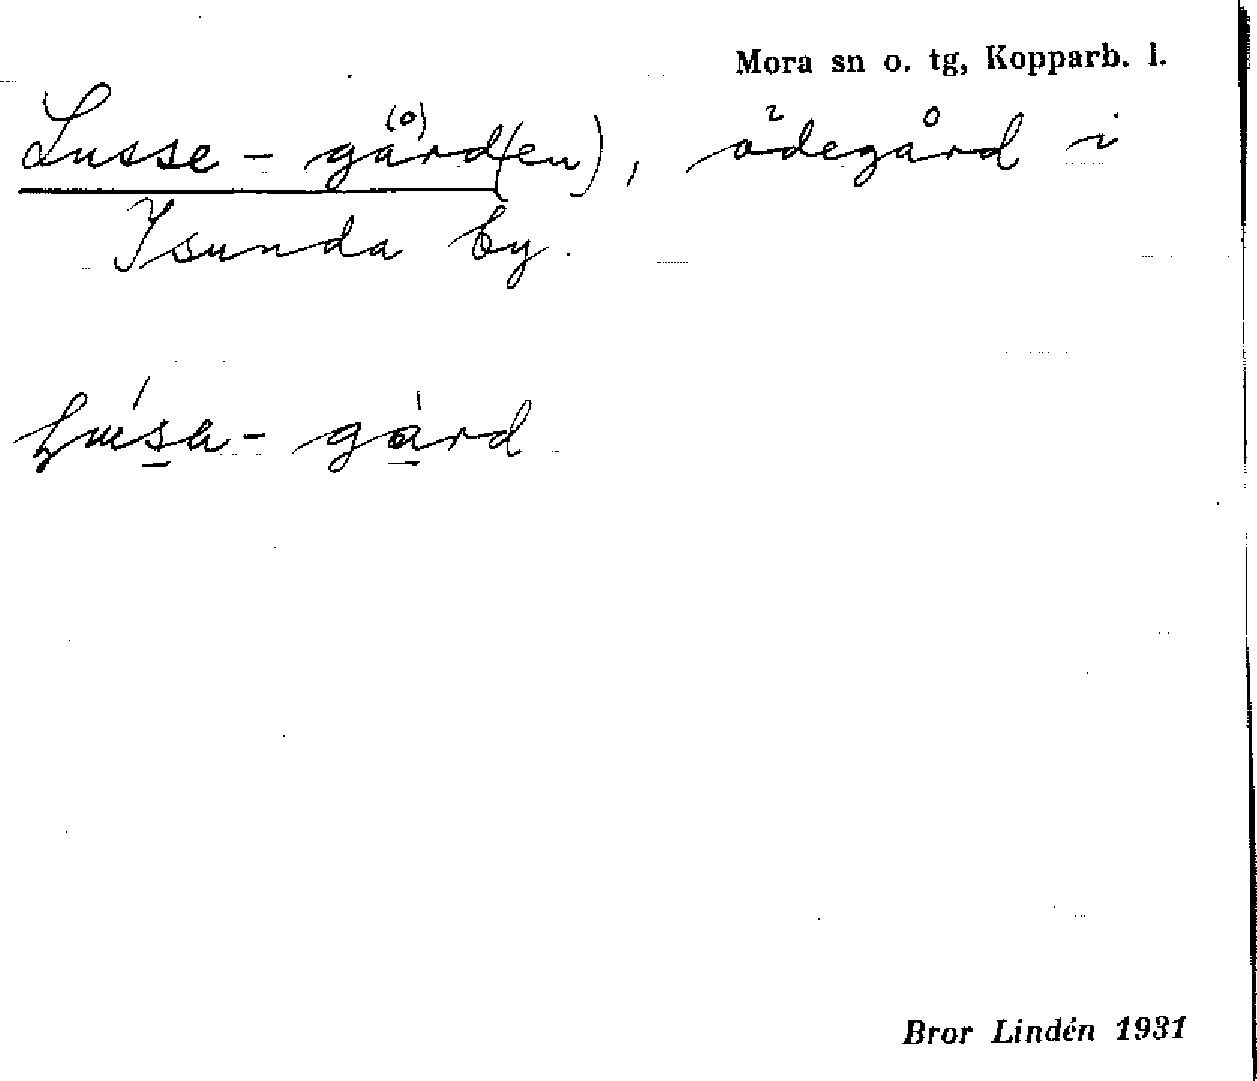 Mora sn o. tg, Kopparb. l.
Lusse-gård(en), ödegård i
Isunda by.
gård
Bror Lindén 1931